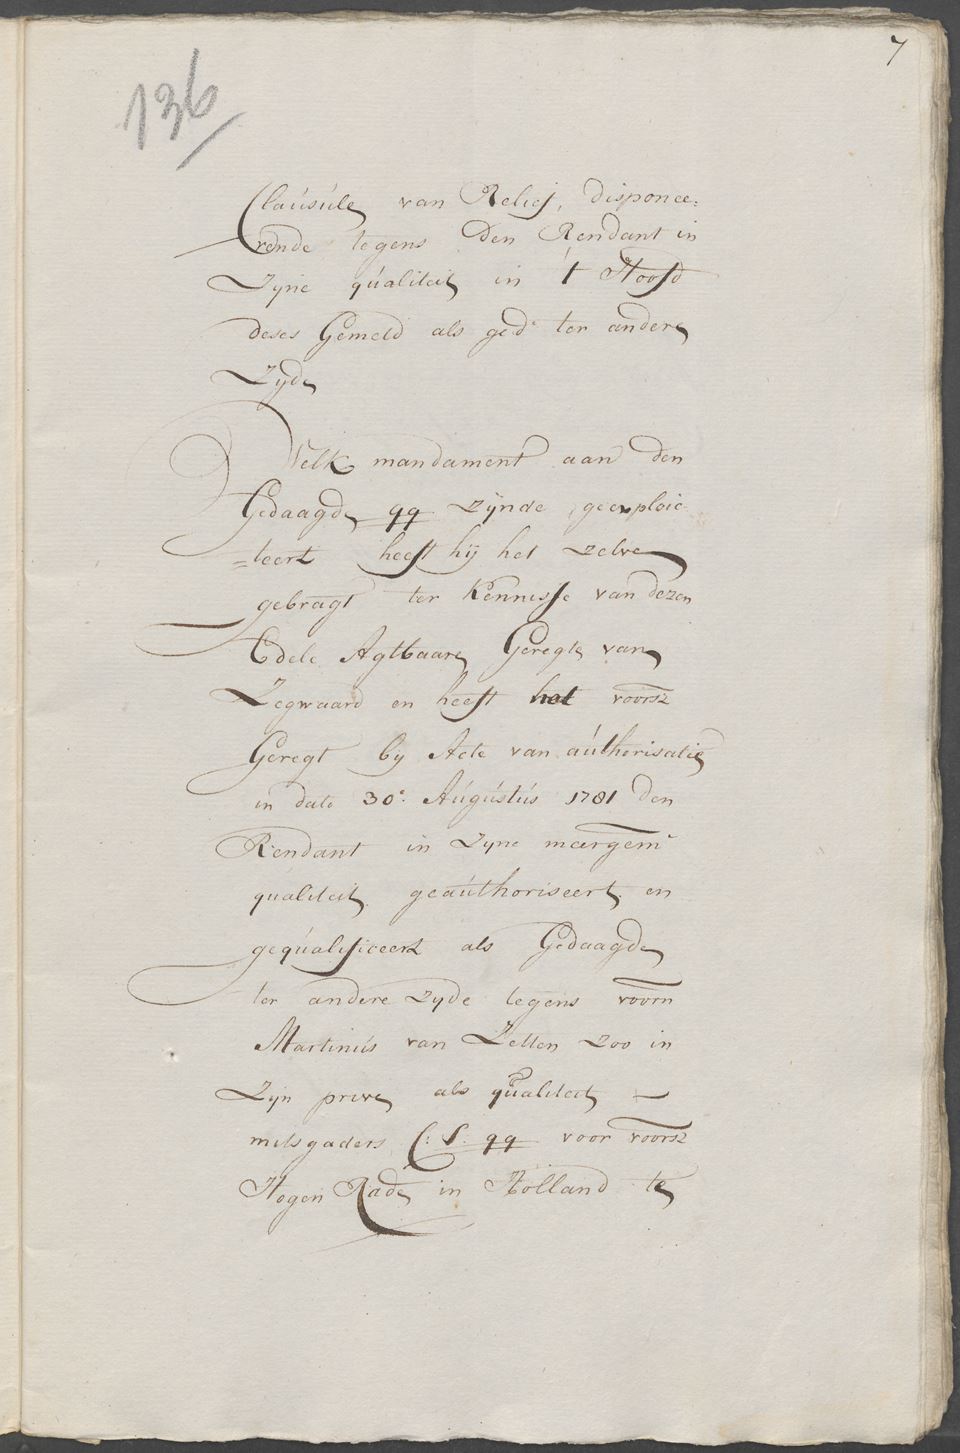 7
136
Clausule van Relief, disponee:
rende tegens den Rendant in
zyne qualiteit in 't Hoofd
deses Gemeld als ged:e ter andere
zyde
Welk mandament aan den
Gedaagde qq zynde geexploic
=teert heeft hij het zelve
gebragt ter kennisse van dezen
Edele Agtbaare Geregte van
Zegwaard en heeft het voorsz
Geregt by Acte van authorisatie
in dato 30e. Augustus 1781 den
Rendant in zyne meergem
qualiteit geauthoriseert en
gequalificeert als Gedaagde
ter andere zyde tegens voorn
Martinus van Zetten zoo in
zijn prive als qualiteit
mitsgaders C: S: qq voor voorsz
Hogen Rade in Holland te